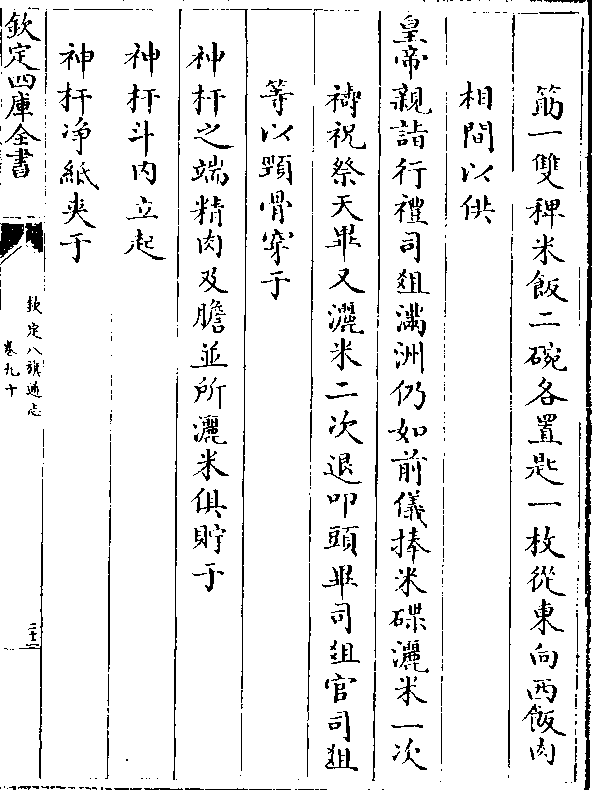 筯一雙稗米飯二碗各置匙一枚從東向西飯肉
相間以供
皇帝親詣行禮司俎滿洲仍如前儀捧米碟灑米一次
禱祝祭天畢又灑米二次退叩頭畢司俎官司俎
等以頸骨穿于
神杆之端精肉及膽並所灑米俱貯于
神杆斗内立起
神杆净紙夾于
欽定四庫全書
欽定八旗通志
卷九十